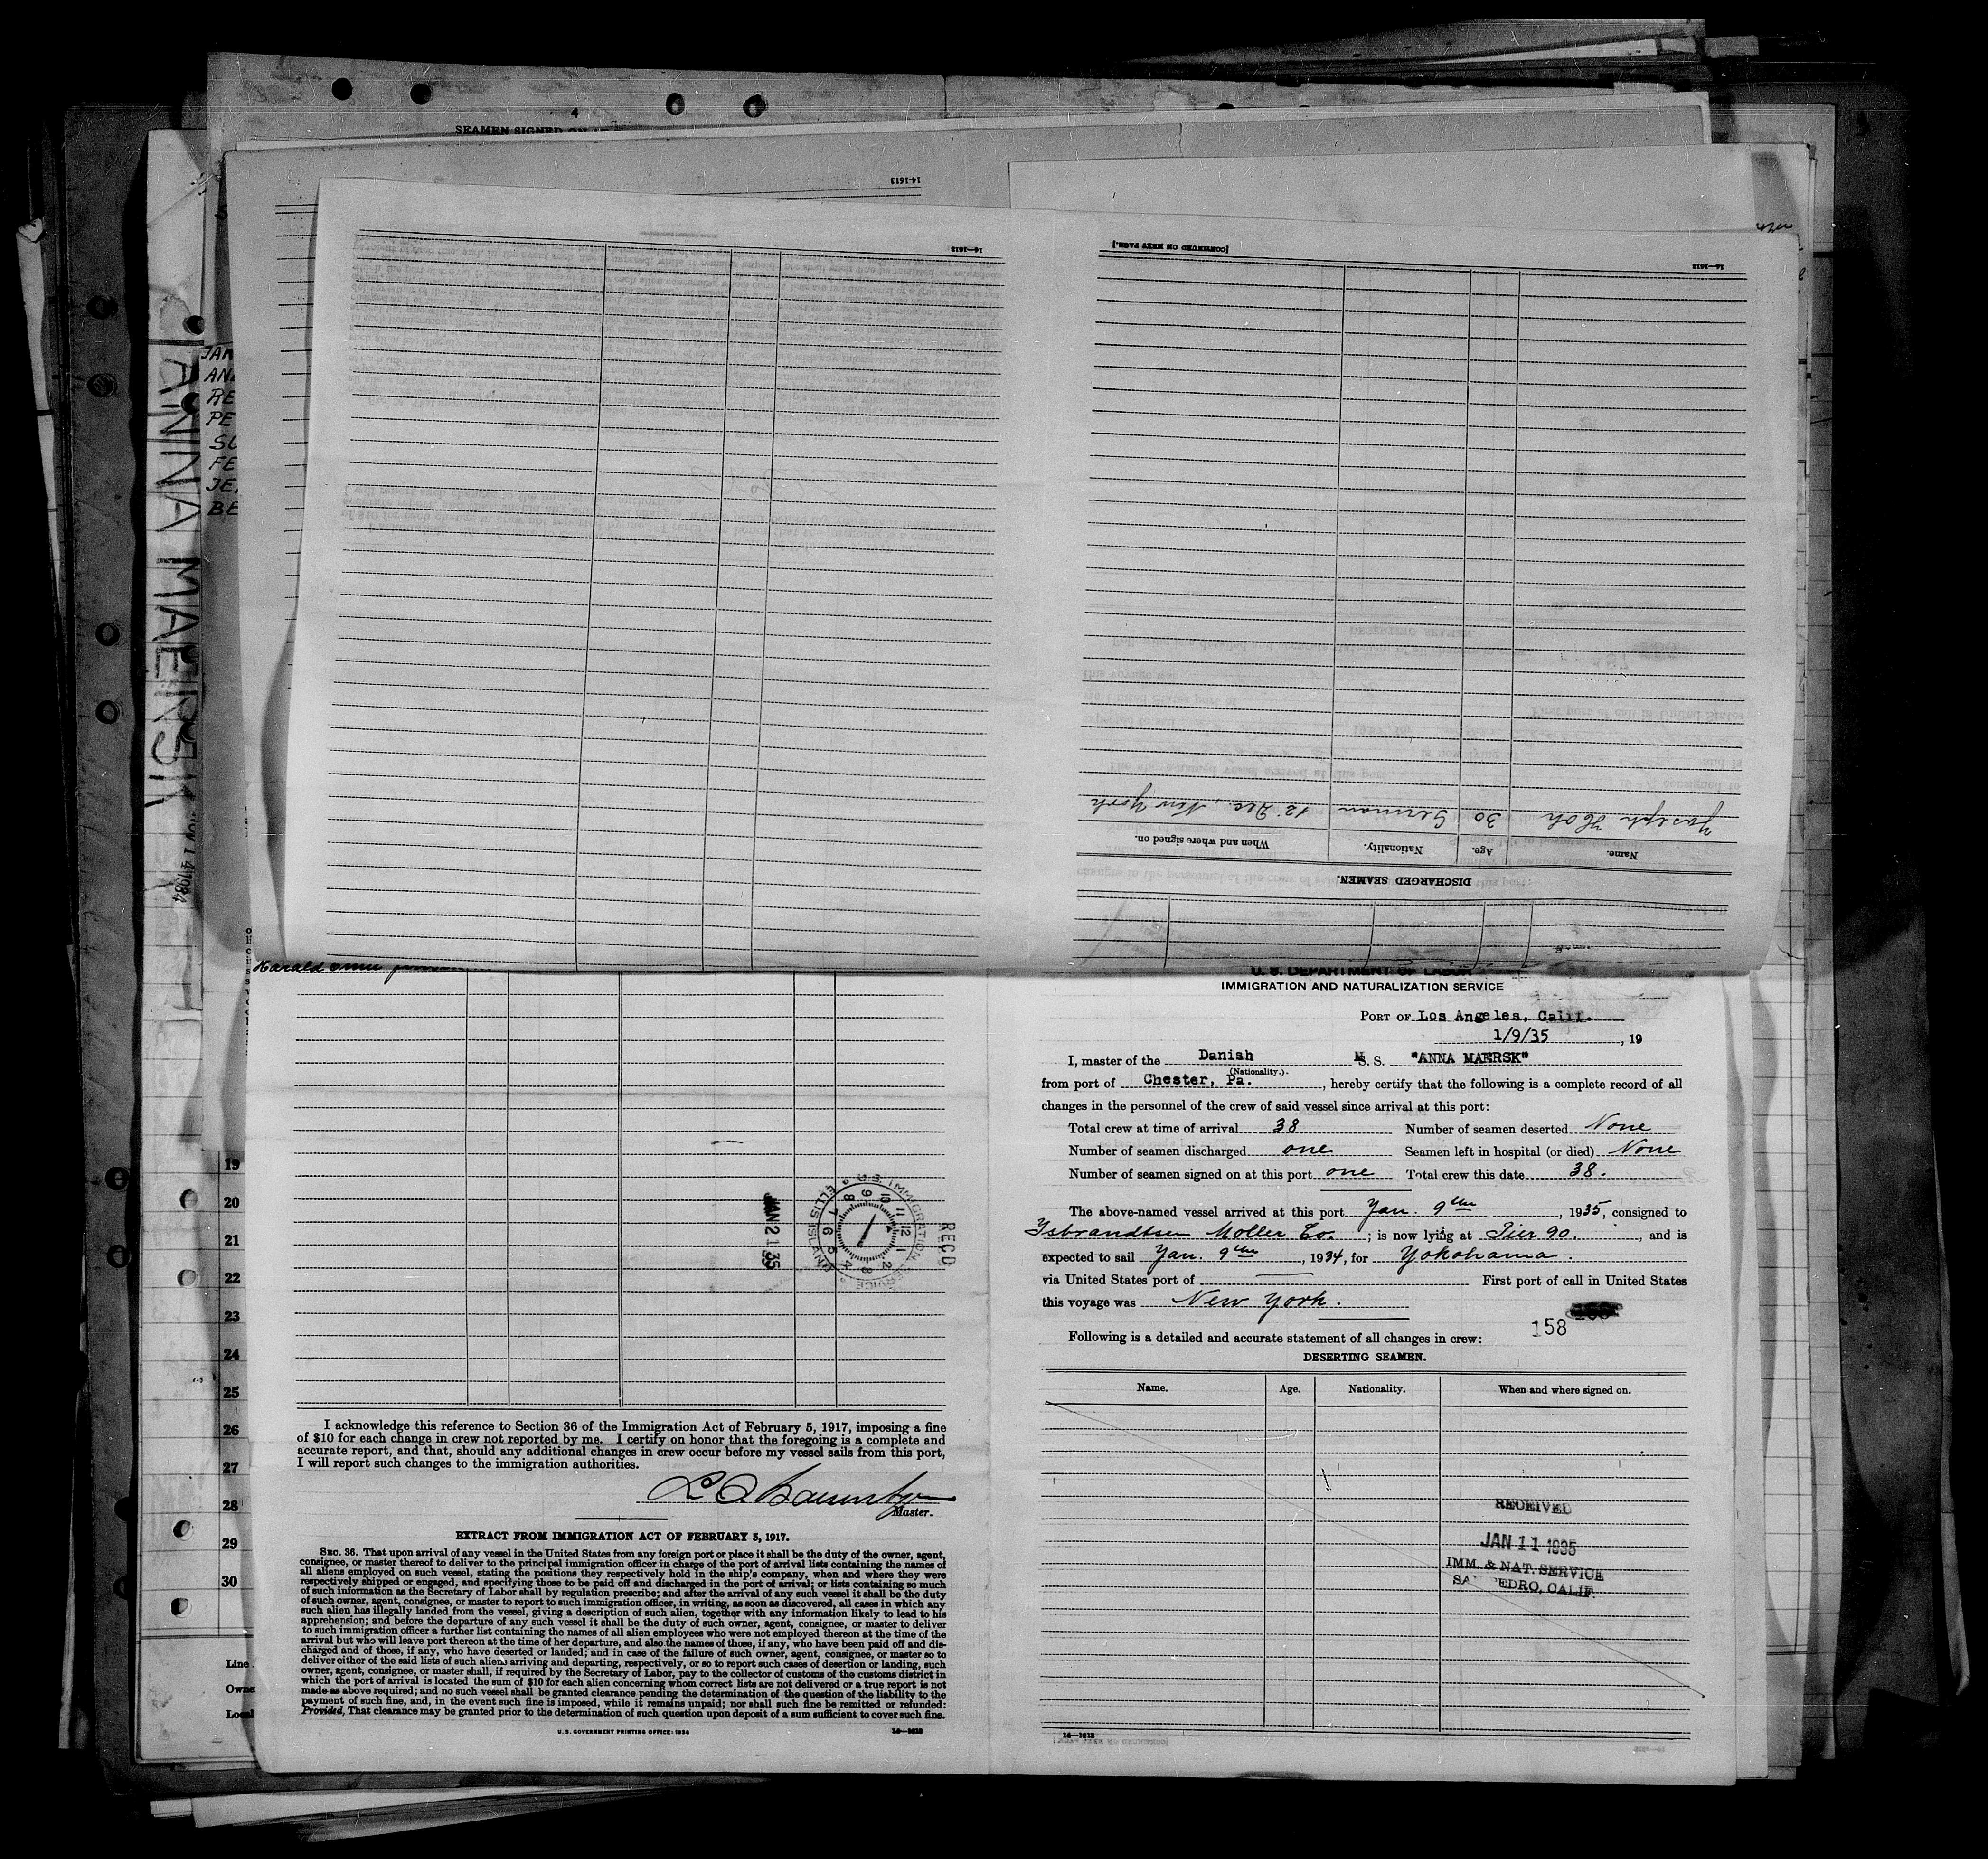 4
SEAMEN SIGNED ON
14-1613
14—1613
[CONTINUED ON NEXT PAGE.]
14—1613
ANNA MAERSK
NOV 1 4 1934
JAN
AN
RE
PE
SU
FE
JE
BE
Joseph Hoh 30 German 12 Dec. New York
Name. Age. Nationality. When and where signed on.
DISCHARGED SEAMEN.
Harald
U. S. DEPARTMENT OF LABOR
IMMIGRATION AND NATURALIZATION SERVICE
PORT OF Los Angeles, Calif.
1/9/35, 19
I, master of the Danish M S. S. "ANNA MAERSK"
(Nationality.)
from port of Chester, Pa., hereby certify that the following is a complete record of all
changes in the personnel of the crew of said vessel since arrival at this port:
Total crew at time of arrival 38 Number of seamen deserted None
Number of seamen discharged one Seamen left in hospital (or died) None
Number of seamen signed on at this port one Total crew this date 38.
The above-named vessel arrived at this port Jan. 9th, 1935, consigned to
Isbrandtsen Moller Co.; is now lying at Pier 90., and is
expected to sail Jan. 9th, 1934, for Yokohama.
via United States port of — First port of call in United States
this voyage was New York.
158
Following is a detailed and accurate statement of all changes in crew:
DESERTING SEAMEN.
Name. Age. Nationality. When and where signed on.
RECEIVED
JAN 11 1935
IMM. & NAT. SERVICE
SAN PEDRO, CALIF.
14—1613
[CONTINUED ON NEXT PAGE]
JAN 21 35
U.S. IMMIGRATION SERVICE ELLIS ISLAND
1 2 3 4 5 6 7 8 9 10 11 12
REC'D
19
20
21
22
23
24
25
26
27
28
29
30
Line
Owne
Local
I acknowledge this reference to Section 36 of the Immigration Act of February 5, 1917, imposing a fine
of $10 for each change in crew not reported by me. I certify on honor that the foregoing is a complete and
accurate report, and that, should any additional changes in crew occur before my vessel sails from this port,
I will report such changes to the immigration authorities.
Master.
EXTRACT FROM IMMIGRATION ACT OF FEBRUARY 5, 1917.
SEC. 36. That upon arrival of any vessel in the United States from any foreign port or place it shall be the duty of the owner, agent,
consignee, or master thereof to deliver to the principal immigration officer in charge of the port of arrival lists containing the names of
all aliens employed on such vessel, stating the positions they respectively hold in the ship's company, when and where they were
respectively shipped or engaged, and specifying those to be paid off and discharged in the port of arrival; or lists containing so much
of such information as the Secretary of Labor shall by regulation prescribe; and after the arrival of any such vessel it shall be the duty
of such owner, agent, consignee, or master to report to such immigration officer, in writing, as soon as discovered, all cases in which any
such alien has illegally landed from the vessel, giving a description of such alien, together with any information likely to lead to his
apprehension; and before the departure of any such vessel it shall be the duty of such owner, agent, consignee, or master to deliver
to such immigration officer a further list containing the names of all alien employees who were not employed thereon at the time of the
arrival but who will leave port thereon at the time of her departure, and also the names of those, if any, who have been paid off and dis-
charged and of those, if any, who have deserted or landed; and in case of the failure of such owner, agent, consignee, or master so to
deliver either of the said lists of such aliens arriving and departing, respectively, or so to report such cases of desertion or landing, such
owner, agent, consignee, or master shall, if required by the Secretary of Labor, pay to the collector of customs of the customs district in
which the port of arrival is located the sum of $10 for each alien concerning whom correct lists are not delivered or a true report is not
made as above required; and no such vessel shall be granted clearance pending the determination of the question of the liability to the
payment of such fine, and, in the event such fine is imposed, while it remains unpaid; nor shall such fine be remitted or refunded:
Provided, That clearance may be granted prior to the determination of such question upon deposit of a sum sufficient to cover such fine.
U. S. GOVERNMENT PRINTING OFFICE: 1934
14—1613